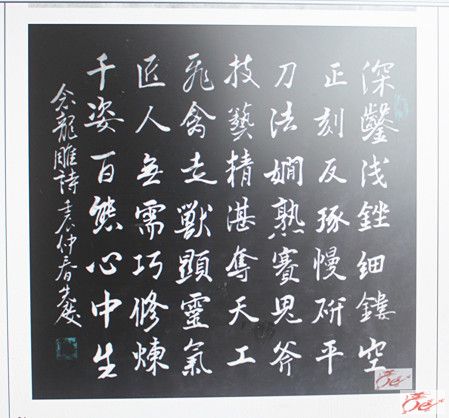 深鑿浅銼细鏤空
正刻反琢慢研平
刀法嫻熟賽鬼斧
技藝精湛奪天工
飛禽走獸顯靈氣
匠人無需巧修煉
千姿百態心中生
龍雕詩 仲春